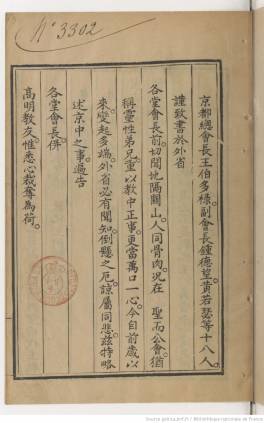 N° 3302
京都總會長王伯多祿。副會長鍾德望。黃若瑟等十八人。
謹致書於外省
各堂會長前。切聞地隔關山。人同骨肉。況在 聖而公會。猶
稱靈性弟兄。重以教中正事。更當萬口一心。今自前歲以
來。變起多端。外省必有聞知。倒懸之厄。諒屬同悲。茲特略
述京中之事。遍告
各堂會長。併
高明教友。惟悉心裁奪為荷。
Source gallica.bnf.fr / Bibliothèque nationale de France